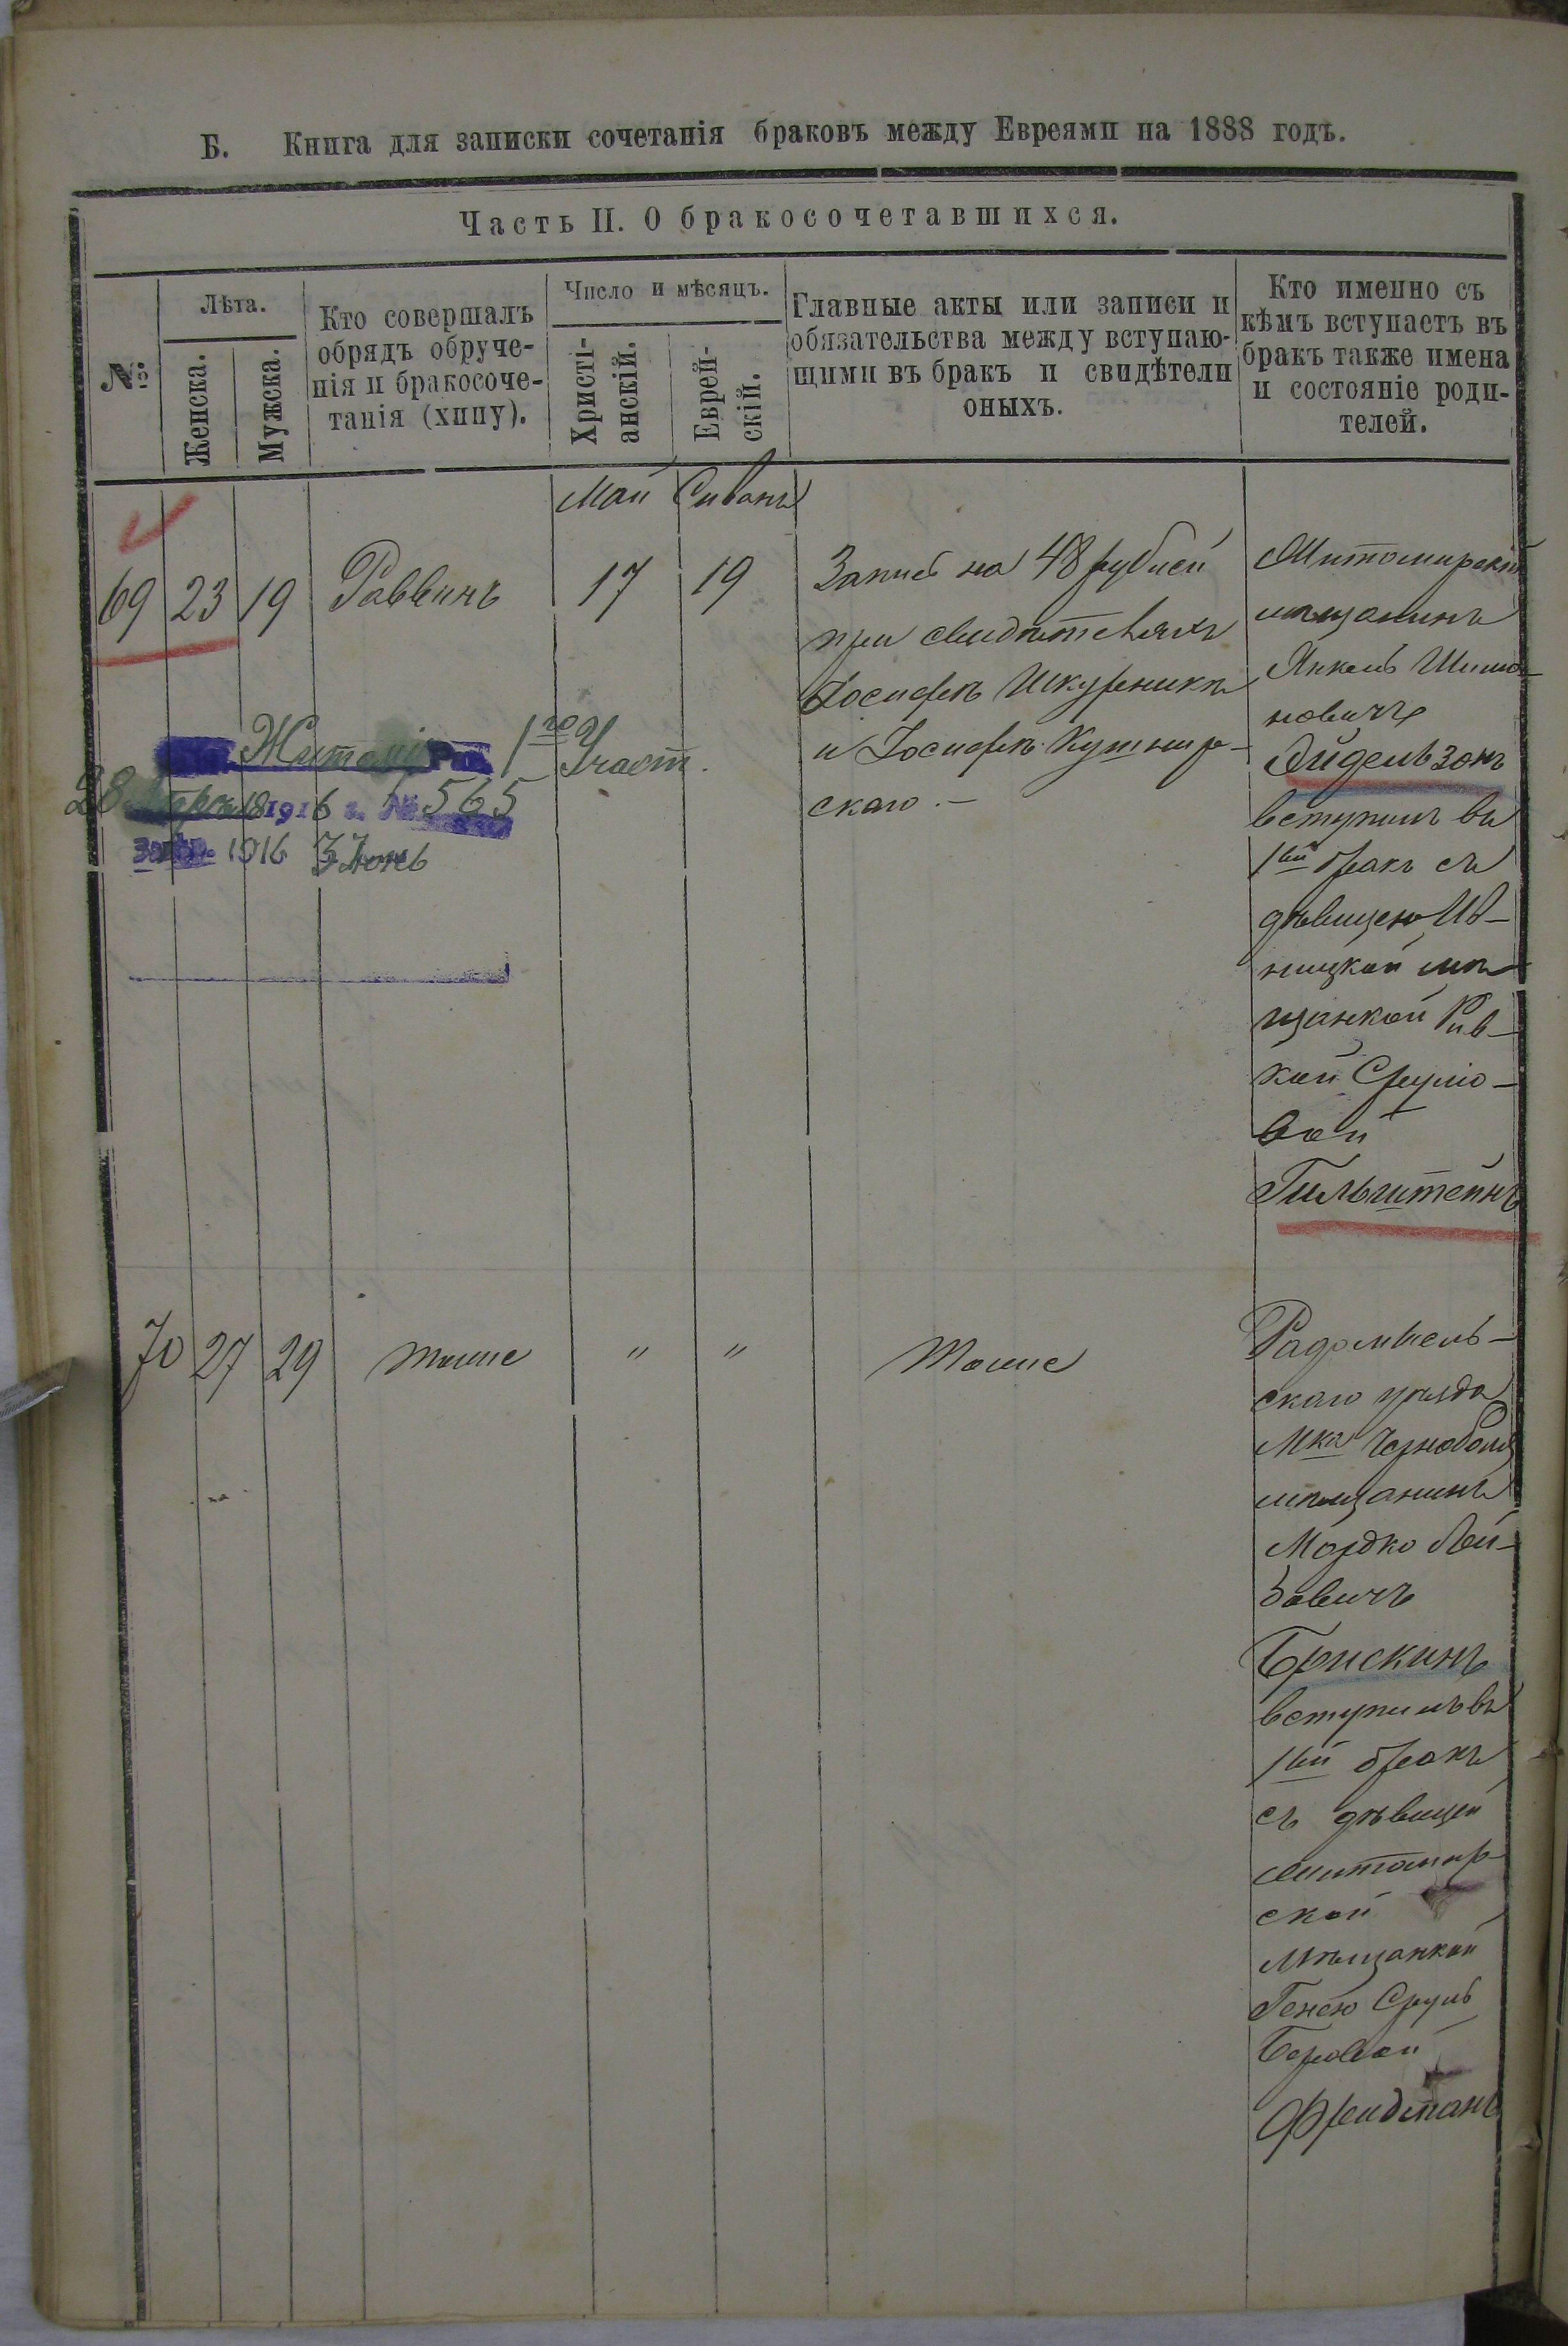 Б. Книга для записки сочетанія браковъ между Евреями на 1888 годъ.
Часть II. О бракосочетавшихся.
№
Лѣта.
Женска.
Мужска.
Кто совершалъ
обрядъ обруче-
нія и бракосоче-
танія (хипу).
Число и мѣсяцъ.
Христі-
анскій.
Еврей-
скій.
Главные акты или записи и
обязательства между вступаю-
щими въ бракъ и свидѣтели
оныхъ.
Кто именно съ
кѣмъ вступаетъ въ
бракъ также имена
и состояніе роди-
телей.
Май Сиванъ
69 23 19 Раввинъ 17 19
Запись на 48 рублей
при свидѣтеляхъ
Іосифѣ Шкурникѣ
и Іосифѣ Кушнир-
скаго.–
Житомирскій
мѣщанинъ
Янкель Шимо-
новичъ
Айдельзонъ
вступилъ въ
1ый бракъ съ
дѣвицею Ив-
ницкой мѣ-
щанкой Рив-
кой Срулю-
вой
Гильштейнъ
1го Участ.
28 1916 г. № 565
1916 3 Июнь
70 27 29 тоже " " Тоже
Радомысль-
скаго уѣзда
Мка Чернобыля
мѣщанинъ
Мордко Лей-
бовичъ
Брискинъ
вступилъ въ
1ый бракъ
съ дѣвицей
Житомир-
ской
мѣщанкой
Генею Сруль
Беровой
Фридманъ